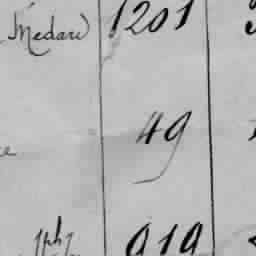 Medard 1201
49
919